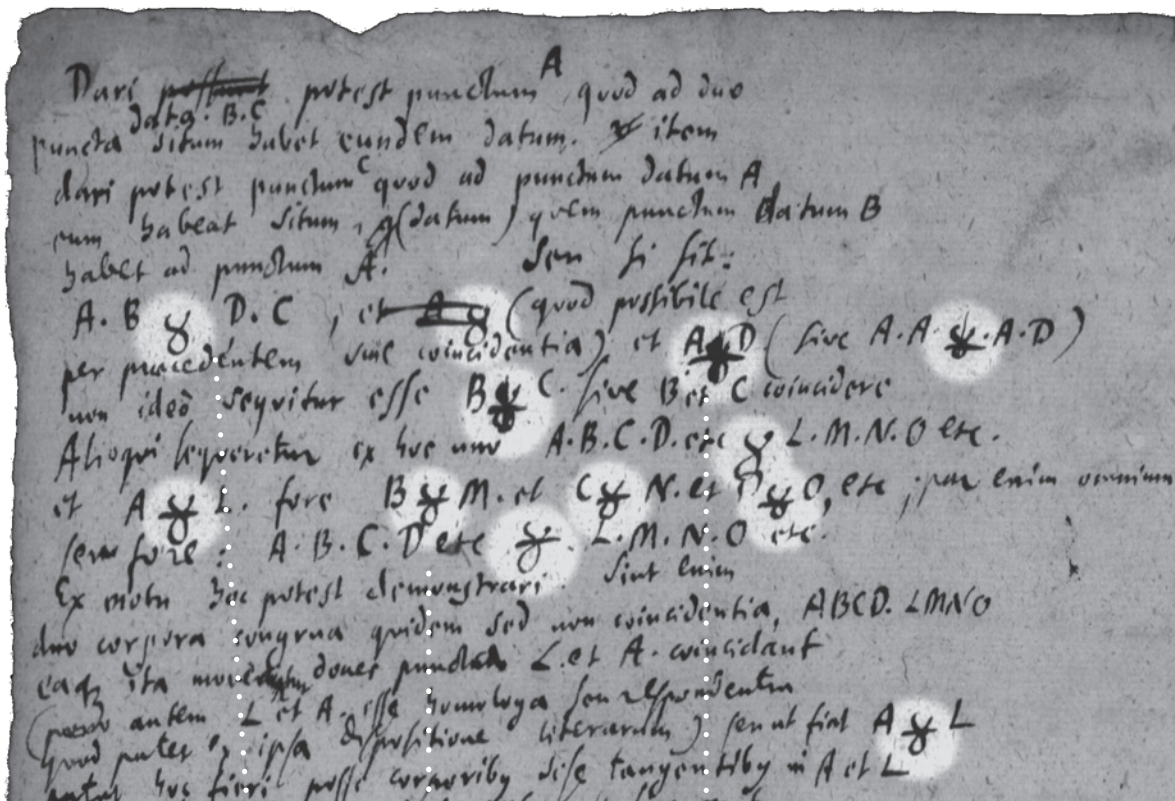 Dari possunt potest punctum A quod ad duo
puncta data. B.C situm habet eundem datum. item
dari potest punctum C quod ad punctum datum A
eum habeat situm, (datum) quem punctum datum B
habet ad punctum A. Seu si sit:
A. B ૪ D. C, et A ૪ (quod possibile est
per præcedentem sine coincidentia) et A D (sive A. A ૪ A. D)
non ideo sequitur esse B ૪ C. sive B et C coincidere
Alioqui sequeretur ex hoc uno A. B. C. D. etc ૪ L. M. N. O etc.
et A ૪ L. fore B ૪ M. et C ૪ N. et D ૪ O, etc, enim omnium
seu fore: A. B. C. D etc ૪ L. M. N. O etc.
Ex motu hoc potest demonstrari. Sint enim
duo corpora congrua quidem sed non coincidentia, ABCD. LMNO
eaq ita donec puncta L. et A. coincidant
(pono autem L et A. esse homologa seu respondentia
quod patet ex ipsa dispositione literarum) seu ut fiat A ૪ L
hoc fieri posse corporiby sese tangentiby in A et L